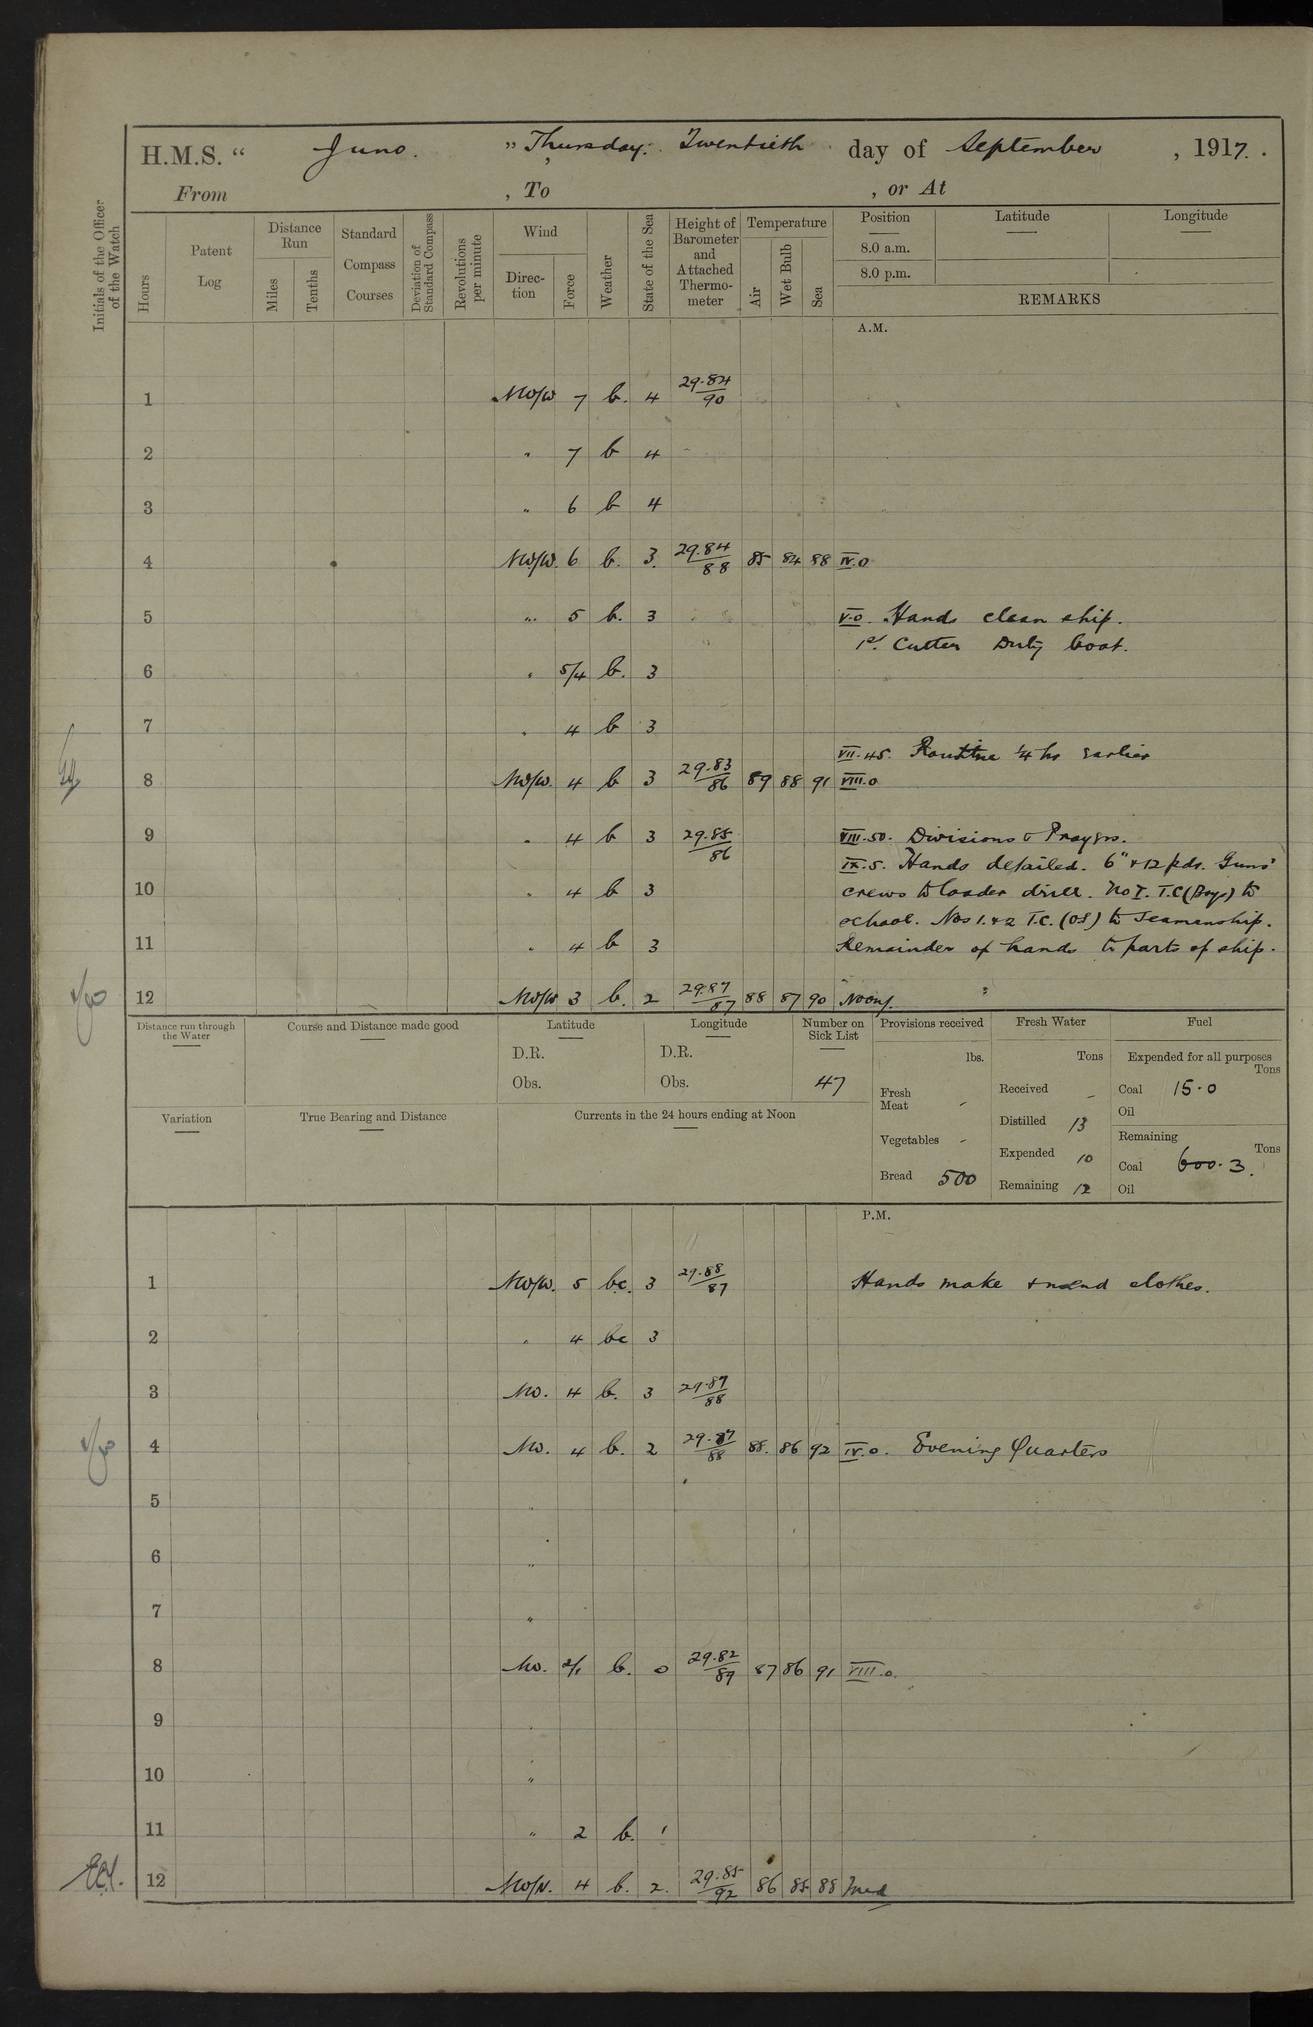 H.M.S. “ Juno. ” Thursday. Twentieth day of September , 1917.
From , To , or At
Initials of the Officer of the Watch
Hours
Patent Log
Distance Run
Miles
Tenths
Standard Compass Courses
Deviation of Standard Compass
Revolutions per minute
Wind
Direction
Force
Weather
State of the Sea
Height of Barometer and Attached Thermometer
Temperature
Air
Wet Bulb
Sea
Position
8.0 a.m.
8.0 p.m.
Latitude
Longitude
REMARKS
A.M.
1 NW/W 7 b. 4 29.84/90
2 " 7 b 4
3 " 6 b 4
4 NW/W. 6 b. 3. 29.84/88 85 84 88 IV.0
5 " 5 b. 3 V.0. Hands clean ship.
1st Cutter Duty boat.
6 " 5/4 b. 3
7 " 4 b 3
VII.45. Routine 1/4 hr earlier
8 NW/W. 4 b 3 29.83/86 89 88 91 VIII.0
9 " 4 b 3 29.85/86 VIII.50. Divisions & Prayers.
IX.5. Hands detailed. 6" & 12 pdr. Guns'
10 " 4 b 3 crews to loader drill. No I. T.C (Boys) to
school. Nos 1. & 2 T.C. (OS) to Seamanship.
11 " 4 b 3 Remainder of hands to parts of ship.
12 NW/W 3 b. 2 29.87/87 88 87 90 Noon.
Distance run through the Water
Course and Distance made good
Latitude
D.R.
Obs.
Longitude
D.R.
Obs.
Number on Sick List
47
Provisions received
lbs.
Fresh Meat -
Vegetables -
Bread 500
Fresh Water
Tons
Received -
Distilled 13
Expended 10
Remaining 12
Fuel
Expended for all purposes
Tons
Coal 15.0
Oil
Remaining
Tons
Coal 600.3.
Oil
Variation
True Bearing and Distance
Currents in the 24 hours ending at Noon
P.M.
1 NW/W. 5 bc. 3 29.88/87 Hands make & mend clothes.
2 " 4 bc 3
3 NW. 4 b. 3 29.87/88
4 NW. 4 b. 2 29.87/88 88. 86 92 IV.0. Evening Quarters
5 "
6 "
7 "
8 NW. 2/1 b. 0 29.82/89 87 86 91 VIII.0.
9 "
10 "
11 " 2 b. 1
12 NW/N. 4 b. 2. 29.85/92 86 85 88 Mid